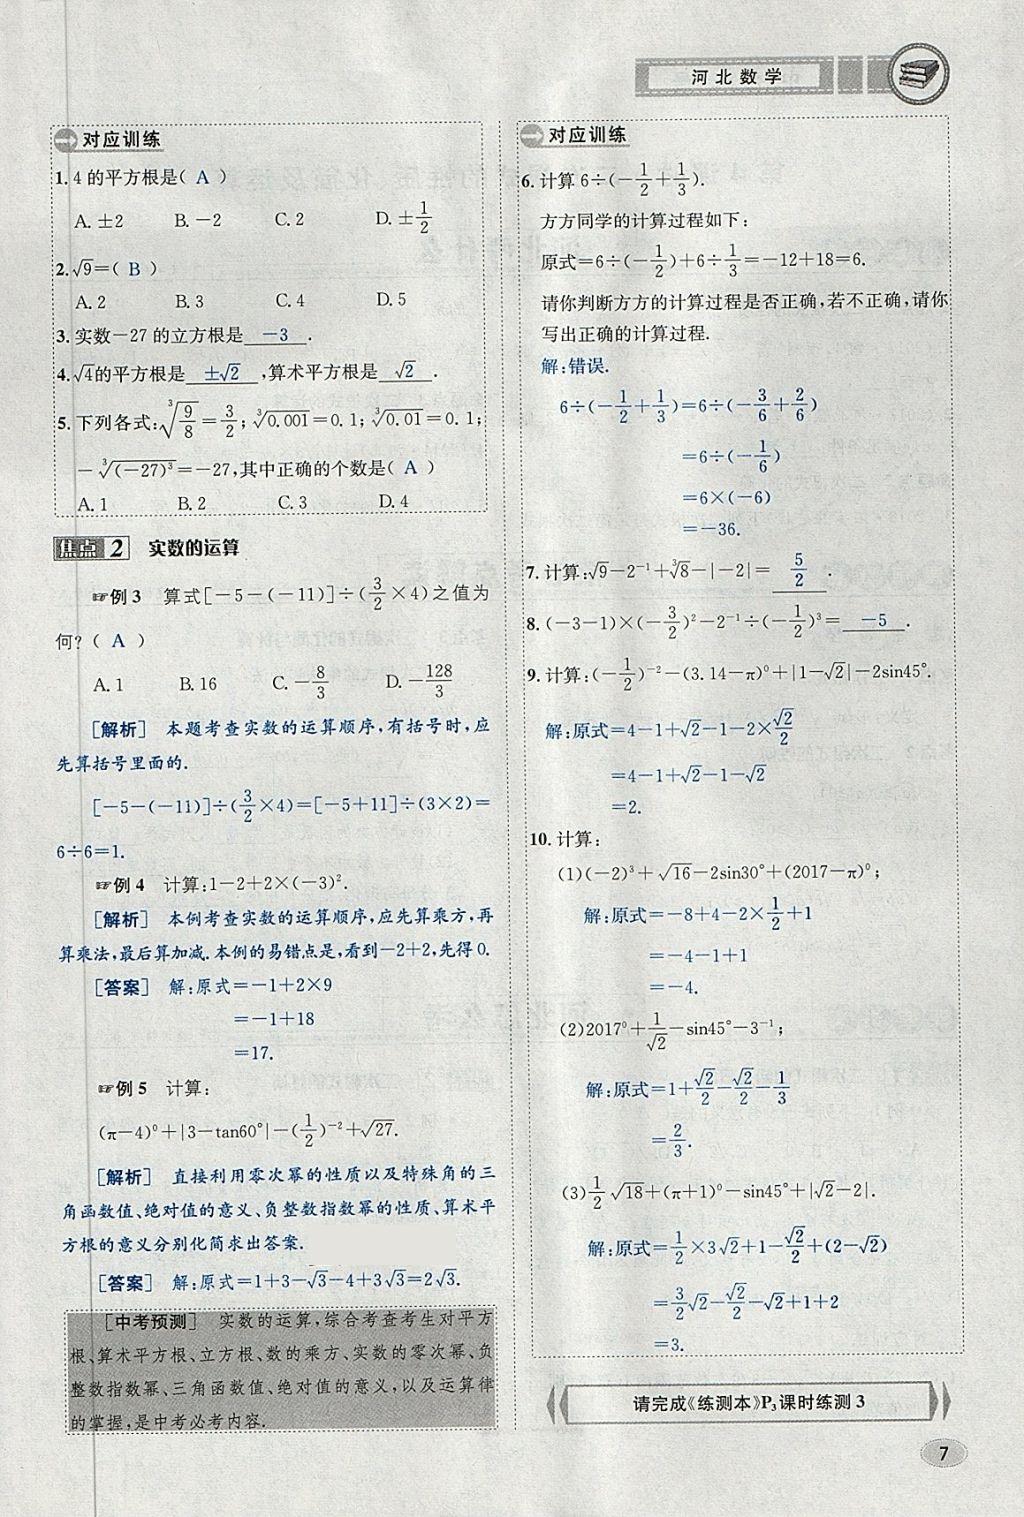 河北数学
对应训练
1. 4 的平方根是( A )
A. ±2 B. −2 C. 2 D. ±1/2
2. √9=( B )
A. 2 B. 3 C. 4 D. 5
3. 实数−27 的立方根是 −3 .
4. √4的平方根是 ±√2 ,算术平方根是 √2 .
5. 下列各式:∛(9/8)=3/2;∛0.001=0.1;∛0.01=0.1;
−∛(−27)³=−27,其中正确的个数是( A )
A. 1 B. 2 C. 3 D. 4
焦点 2 实数的运算
☞例 3 算式[−5−(−11)]÷(3/2×4)之值为
何?( A )
A. 1 B. 16 C. −8/3 D. −128/3
[解析] 本题考查实数的运算顺序,有括号时,应
先算括号里面的.
[−5−(−11)]÷(3/2×4)=[−5+11]÷(3×2)=
6÷6=1.
☞例 4 计算:1−2+2×(−3)².
[解析] 本例考查实数的运算顺序,应先算乘方,再
算乘法,最后算加减.本例的易错点是,看到−2+2,先得0.
[答案] 解:原式=−1+2×9
=−1+18
=17.
☞例 5 计算:
(π−4)⁰+|3−tan60°|−(1/2)⁻²+√27.
[解析] 直接利用零次幂的性质以及特殊角的三
角函数值、绝对值的意义、负整数指数幂的性质、算术平
方根的意义分别化简求出答案.
[答案] 解:原式=1+3−√3−4+3√3=2√3.
[中考预测] 实数的运算,综合考查考生对平方
根、算术平方根、立方根、数的乘方、实数的零次幂、负
整数指数幂、三角函数值、绝对值的意义,以及运算律
的掌握,是中考必考内容.
对应训练
6. 计算 6÷(−1/2+1/3).
方方同学的计算过程如下:
原式=6÷(−1/2)+6÷1/3=−12+18=6.
请你判断方方的计算过程是否正确,若不正确,请你
写出正确的计算过程.
解:错误.
6÷(−1/2+1/3)=6÷(−3/6+2/6)
=6÷(−1/6)
=6×(−6)
=−36.
7. 计算:√9−2⁻¹+∛8−|−2|= 5/2 .
8. (−3−1)×(−3/2)²−2⁻¹÷(−1/2)³= −5 .
9. 计算:(−1/2)⁻²−(3.14−π)⁰+|1−√2|−2sin45°.
解:原式=4−1+√2−1−2×√2/2
=4−1+√2−1−√2
=2.
10. 计算:
(1)(−2)³+√16−2sin30°+(2017−π)⁰;
解:原式=−8+4−2×1/2+1
=−4−1+1
=−4.
(2)2017⁰+1/√2−sin45°−3⁻¹;
解:原式=1+√2/2−√2/2−1/3
=2/3.
(3)1/2√18+(π+1)⁰−sin45°+|√2−2|.
解:原式=1/2×3√2+1−√2/2+(2−√2)
=3/2√2−√2/2−√2+1+2
=3.
请完成《练测本》P₃课时练测 3
7